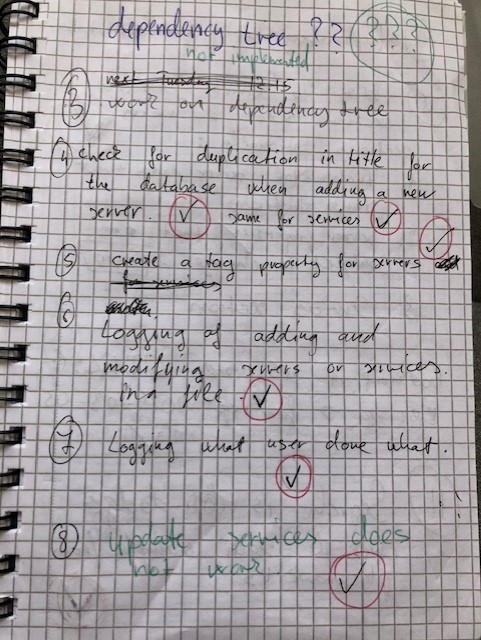 dependency tree ?? ???
not implemented
next Tuesday 12.15
3 work on dependency tree
4 check for duplication in title for
the database when adding a new
server. ✓ same for services ✓
5 create a tag property for servers ✓
for services
6
Logging of adding and
modifying servers or services.
in a file ✓
7 Logging what user done what.
✓
8 update services does
not work ✓